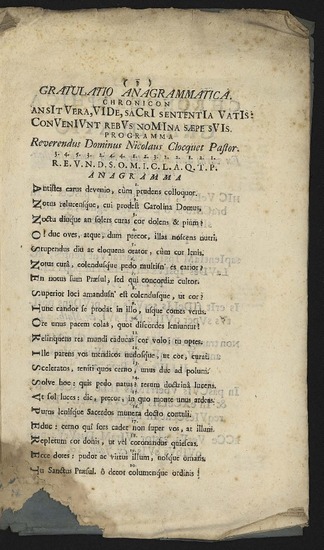 ( 3 )
GRATULATIO ANAGRAMMATICA.
CHRONICON
ANSIT VERA, VIDE, SACRI SENTENTIA VATIS:
ConVenIVnt rebVs noMIna sæpe sVIs.
PROGRAMMA
Reverendus Dominus Nicolaus Clocquet Pastor.
R. E. V. N. D. S. O. M. I. C. L. A. Q. T. P.
ANAGRAMMA
Antistes carus devenio, cùm prudens colloquor.
Notus relucensque, cui prodest Carolina Domus,
Nocta diuque an solers curas cor dolens & pium?
O duc oves, atque, dum precor, illas noscens nutri,
Stupendus diù ac eloquens orator, cùm cor lenis.
Notus curâ, colendusque pedo multisn' es carior?
En noceu sum Præsul, sed qui concordiæ cultor.
Superior loci amandusn' est colendusque, ut cor?
Tunc candor se prodat in illo, usque comes verus.
Ore unus pacem colas, quot discordes leniuntur?
Relinquens rea mundi caducas cor volo: tu optes.
Ille parens vos mendicos nudosque, ut cor, curat:
Sceleratos, tensit quos cerno, unus duc ad poluns.
Solve hoc: quis pedo natus? rerum doctrinâ lucens.
V sol luces: dic, precor, in quo monte unus ardens.
Purus lensque Sacerdos munera docto contuli.
Educ: cerno qui sors cadet non super vos, at illum.
Repletum cor donis, ut vel coronandus quiescas.
Ecce dores: pudor ac virtus illum, nosque ornans.
Tu Sanctus Præsul, ô decor columenque ordinis!